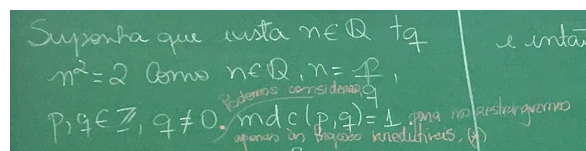 Suponha que exista n ∈ Q tq
n² = 2 Como n ∈ Q, n = p/q,
Podemos considerar
p, q ∈ Z, q ≠ 0. mdc(p,q) = 1. para nos restringirmos
apenas às frações irredutíveis, (*)
e então